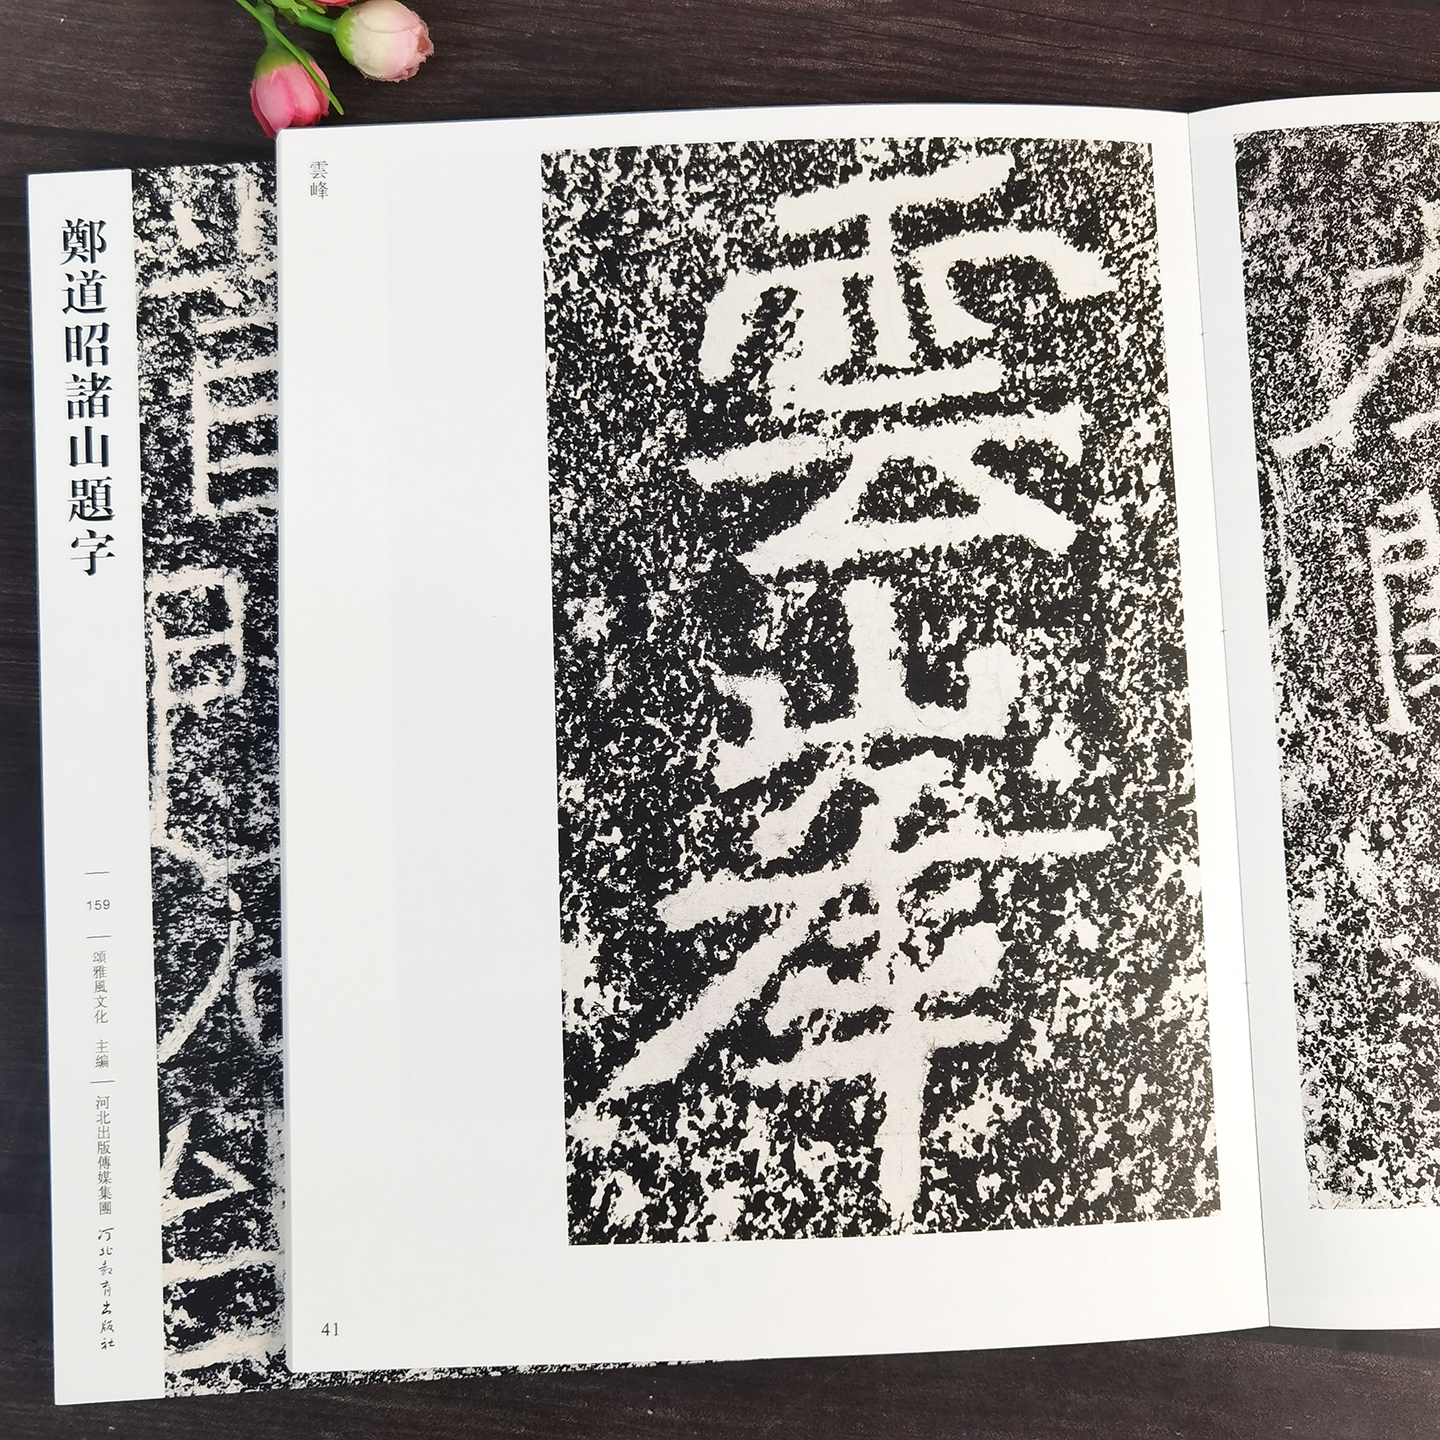 鄭道昭諸山題字
159
頌雅風文化 主编
河北出版傳媒集團
河北教育出版社
雲峰
雲峯
41